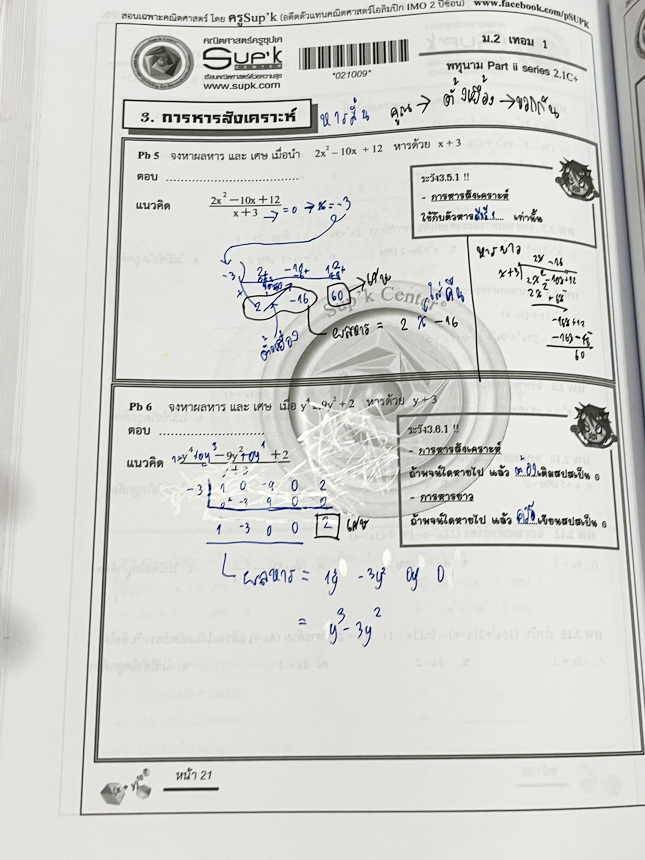 สอนเฉพาะคณิตศาสตร์ โดย ครูSup'k (อดีตตัวแทนคณิตศาสตร์โอลิมปิก IMO 2 ปีซ้อน) www.facebook.com/pSUPK
คณิตศาสตร์ครูซุปเค
SUP'K
CENTER
เรียนคณิตศาสตร์ด้วยความสุข
www.supk.com
*021009*
ม.2 เทอม 1
พหุนาม Part ii series 2.1C+
3. การหารสังเคราะห์
หารสั้น คูณ → ตั้งเยื้อง → บวกกัน
Pb 5 จงหาผลหาร และ เศษ เมื่อนำ 2x² – 10x + 12 หารด้วย x + 3
ตอบ ................................
ระวัง3.5.1 !!
- การหารสังเคราะห์
ใช้กับตัวหาร เท่านั้น
แนวคิด 2x² – 10x + 12
x + 3 → = 0 → x = -3
หารยาว
2x -16
x+3 2x² -10x+12
-16x+12
60
-3
2 -16 60 → เศษ
ตั้งเยื้อง
ผลหาร = 2 x -16
ใส่คืน
Sup'k Center
Pb 6 จงหาผลหาร และ เศษ เมื่อ y⁴ – 9y² + 2 หารด้วย y + 3
ตอบ ................................
ระวัง3.6.1 !!
- การหารสังเคราะห์
ถ้าพจน์ใดหายไป แล้ว ต้องเติมสปสเป็น 0
- การหารยาว
ถ้าพจน์ใดหายไป แล้ว เขียนสปสเป็น 0
แนวคิด 1y⁴+0y³ – 9y²+0y¹ + 2
y + 3
-3 1 0 -9 0 2
-3 9 0 0
1 -3 0 0 2 เศษ
ผลหาร = 1y³ -3y² 0y 0
= y³ - 3y²
หน้า 21